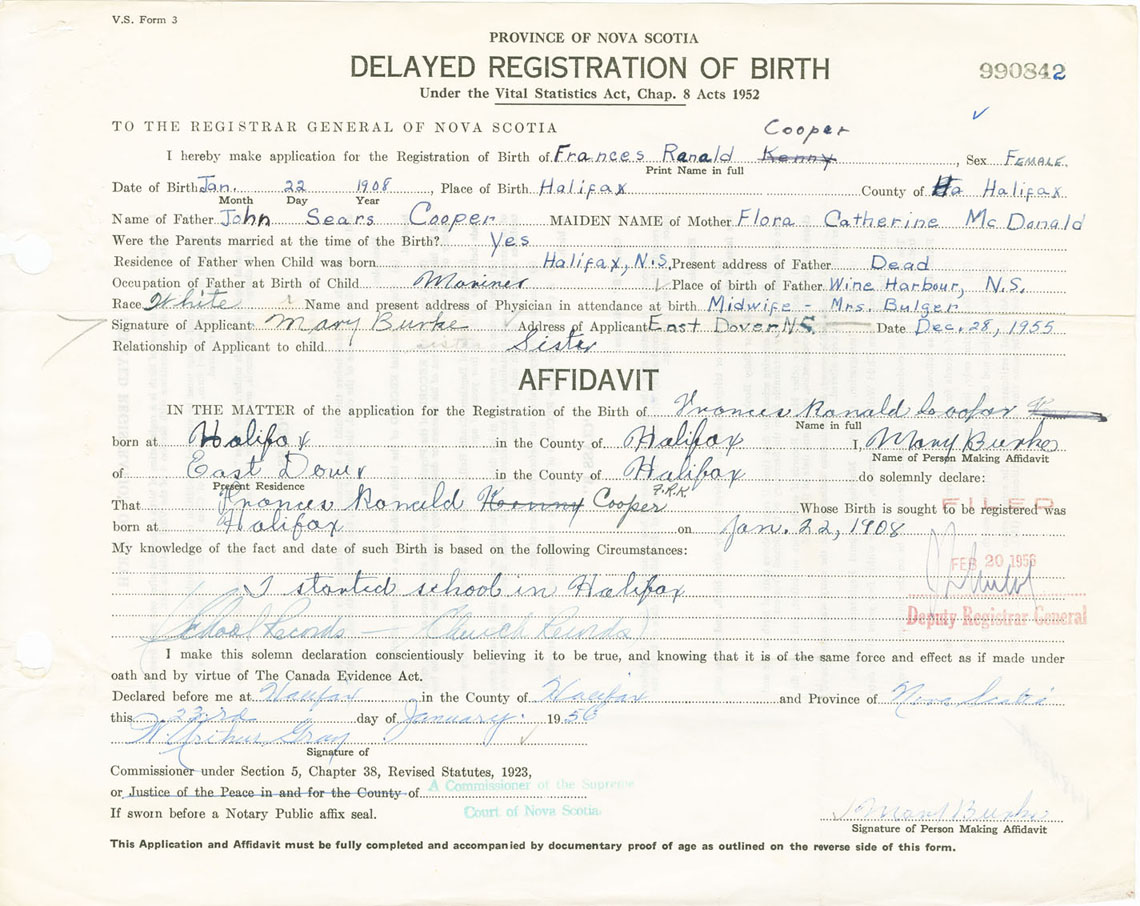 V.S. Form 3
PROVINCE OF NOVA SCOTIA
DELAYED REGISTRATION OF BIRTH
990842
Under the Vital Statistics Act, Chap. 8 Acts 1952
TO THE REGISTRAR GENERAL OF NOVA SCOTIA
Cooper
I hereby make application for the Registration of Birth of Frances Ranald Kenny, Sex FEMALE.
Print Name in full
Date of Birth Jan. 22 1908, Place of Birth Halifax County of Ha Halifax
Month Day Year
Name of Father John Sears Cooper MAIDEN NAME of Mother Flora Catherine McDonald
Were the Parents married at the time of the Birth? Yes
Residence of Father when Child was born Halifax, N.S. Present address of Father Dead
Occupation of Father at Birth of Child Mariner Place of birth of Father Wine Harbour, N.S.
Race White Name and present address of Physician in attendance at birth Midwife - Mrs. Bulger
Signature of Applicant: Mary Burke Address of Applicant East Dover N.S. Date Dec. 28, 1955
Relationship of Applicant to child sister Sister
AFFIDAVIT
IN THE MATTER of the application for the Registration of the Birth of Frances Ranald Cooper
Name in full
born at Halifax in the County of Halifax I, Mary Burke
Name of Person Making Affidavit
of East Dover in the County of Halifax do solemnly declare:
Present Residence
That Frances Ranald Kenny Cooper F.R.K. Whose Birth is sought to be registered was
FILED
born at Halifax on Jan. 22, 1908
My knowledge of the fact and date of such Birth is based on the following Circumstances:
FEB 20 1956
I started school in Halifax
Deputy Registrar General
(School Records — Church Records)
I make this solemn declaration conscientiously believing it to be true, and knowing that it is of the same force and effect as if made under
oath and by virtue of The Canada Evidence Act.
Declared before me at Halifax in the County of Halifax and Province of Nova Scotia
this 23rd day of January 1956
W. Arthur Gray
Signature of
Commissioner under Section 5, Chapter 38, Revised Statutes, 1923,
or Justice of the Peace in and for the County of A Commissioner of the Supreme
Court of Nova Scotia.
If sworn before a Notary Public affix seal.
Mary Burke
Signature of Person Making Affidavit
This Application and Affidavit must be fully completed and accompanied by documentary proof of age as outlined on the reverse side of this form.